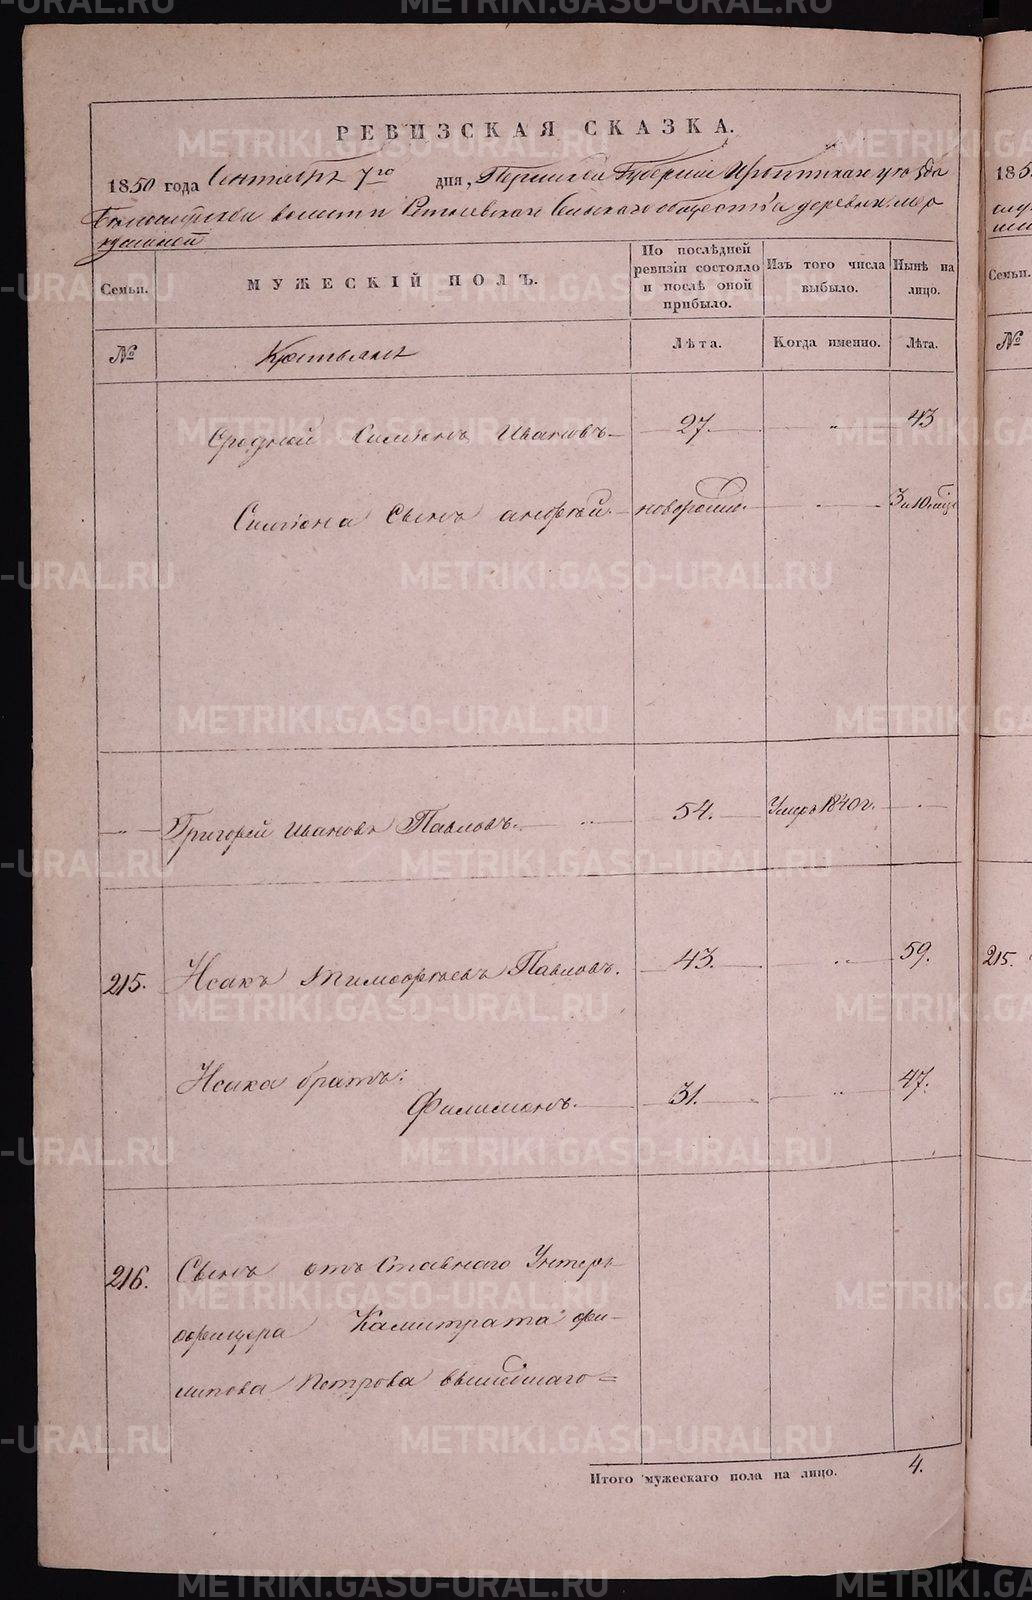 РЕВИЗСКАЯ СКАЗКА.
1850 года Сентября 7го дня, Пермской Губернии Ирбитскаго уезда
волости Сельскаго общества деревни
Семьи.
МУЖЕСКІЙ ПОЛЪ.
По послѣдней ревизіи состояло и послѣ оной прибыло.
Изъ того числа выбыло.
Нынѣ на лицо.
№
Крестьяне
Лѣта.
Когда именно.
Лѣта.
Средней Симіонъ Ивановъ 27. " 43
Симіона Сынъ андрѣй. новорожд. " 3 и 10 мѣс
" Григорей Ивановъ Павловъ. " 54. Умеръ 1840 г. "
215. Исакъ Тимофѣевъ Павловъ. 43. " 59.
Исака братъ:
Филимонъ. 31. " 47.
216. Сынъ отъ Ставнаго Унтеръ
офицера Калистрата фи-
липова Петрова вышедшаго=
Итого мужескаго пола на лицо. 4.
185
№
215.
METRIKI.GASO-URAL.RU